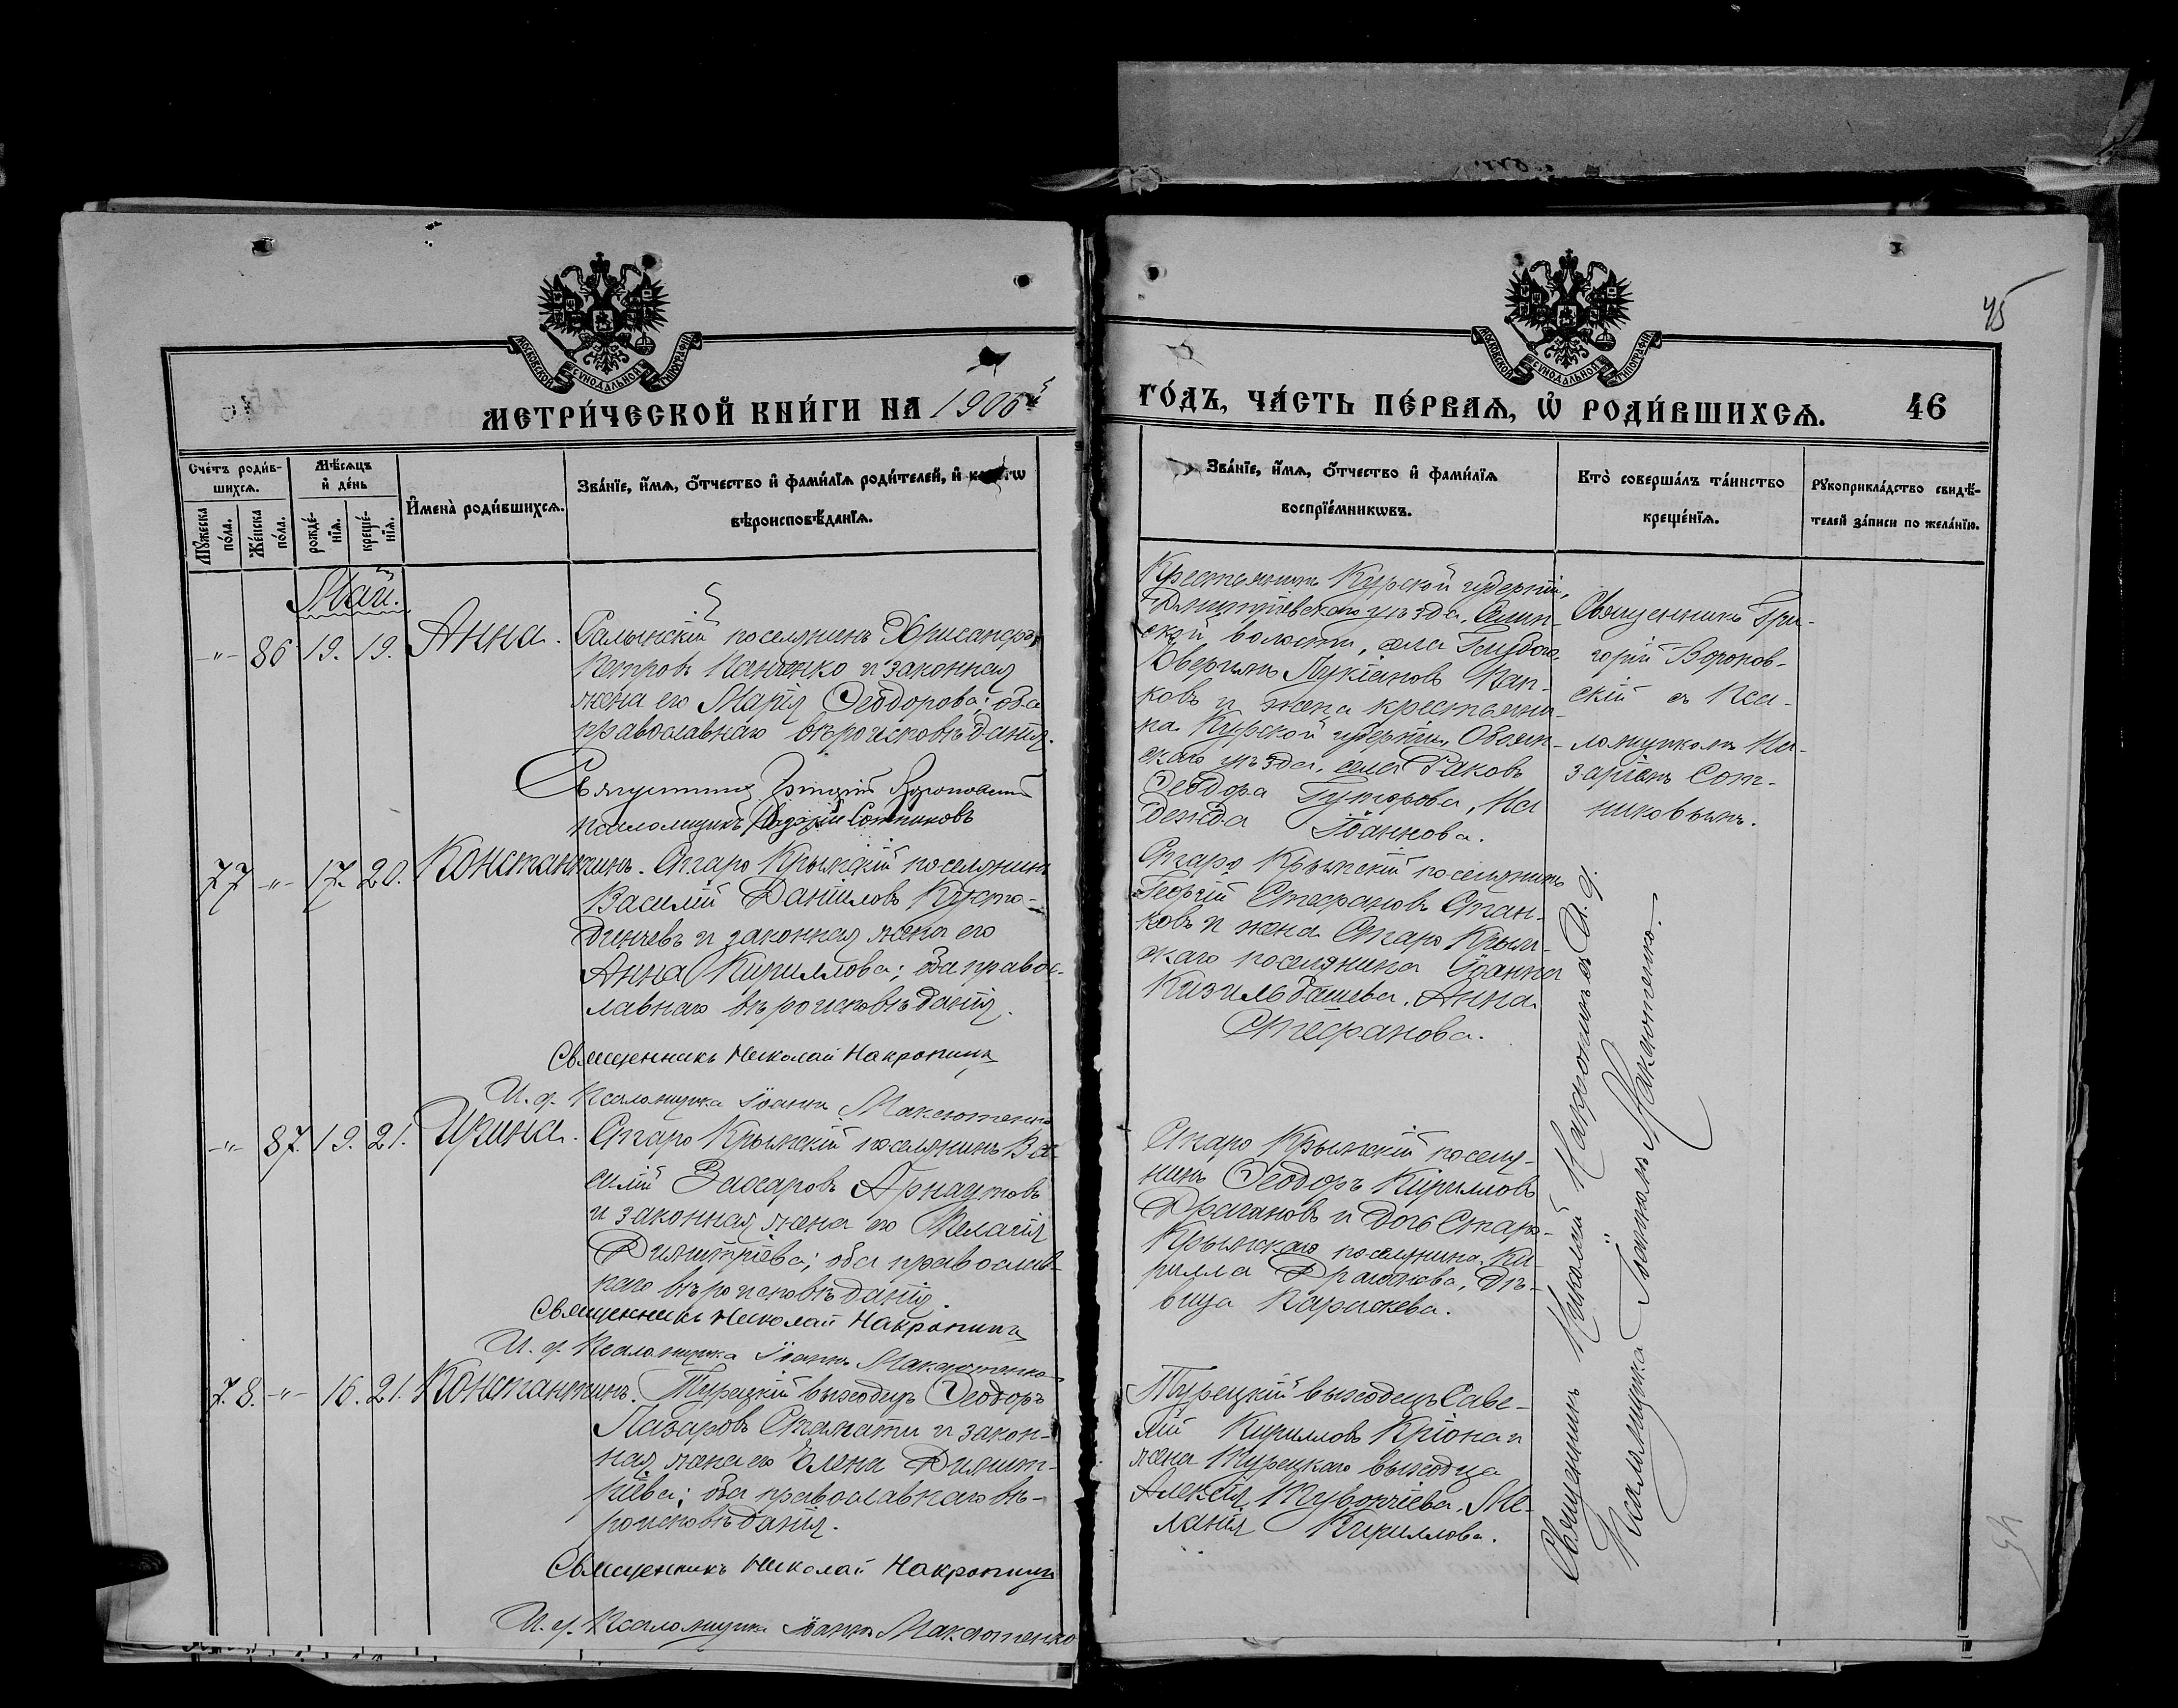 45
МОСКОВСКОЙ СѴНОДАЛЬНОЙ ТИПОГРАФІИ
МОСКОВСКОЙ СѴНОДАЛЬНОЙ ТИПОГРАФІИ
МЕТРИ́ЧЕСКОЙ КНИ́ГИ НА 1906й
ГО́ДЪ, ЧА́СТЬ ПЕ́РВАѦ, Ѡ҆ РОДИ́ВШИХСѦ. 46
Сче́тъ роди́в-
шихсѧ.
Мѣ́сѧцъ
и҆ де́нь
Мꙋ́жеска по́ла.
Же́нска по́ла.
рожде́-
нїѧ.
креще́-
нїѧ.
И҆мена̀ роди́вшихсѧ.
Зва́нїе, и҆́мѧ, о҆́тчество и҆ фами́лїѧ роди́телей, и҆
вѣроисповѣ́данїѧ.
Зва́нїе, и҆́мѧ, о҆́тчество и҆ фами́лїѧ
воспрїе́мникѡвъ.
Кто̀ соверша́лъ та́инство
креще́нїѧ.
Рꙋкоприкла́дство свидѣ́-
телей за́писи по жела́нїю.
Май.
-"- 86 19. 19. Анна.
поселянинъ Хрисанфъ
Петровъ и законная
жена его Марія Ѳеодорова; оба
православнаго вѣроисповѣданія.
Священникъ Григорій Вороновскій
Псаломщикъ Назарій Сотниковъ
Крестьянинъ Курской губерніи,
Дмитріевскаго уѣзда,
ской волости, села
Аверьянъ Лукіановъ
ковъ и жена крестьяни-
на Курской губерніи, Обоян-
скаго уѣзда, села Раково
Ѳеодора Гуторова, На
дежда Іоаннова.
Священникъ Гри-
горій Воронов-
скій съ Пса-
ломщикомъ На-
заріемъ Сот-
никовымъ.
77 -"- 17. 20. Константинъ. Старо Крымскій поселянинъ
Василій Даніиловъ
и законная жена его
Анна Кириллова; оба правос-
лавнаго вѣроисповѣданія.
Священникъ Николай Накропинъ
И. д. Псаломщика Іоаннъ Максютенко
Старо Крымскій поселянинъ
Георгій Стефановъ Стан-
ковъ и жена Старо Крым-
скаго поселянина Іоанна
Кизильбашева, Анна
Стефанова.
-"- 87. 19. 21. Ирина. Старо Крымскій поселянинъ Ва-
силій Захаровъ Арнаутовъ
и законная жена его Пелагія
Димитріева; оба православ-
наго вѣроисповѣданія.
Священникъ Николай Накропинъ
И. д. Псаломщика Іоаннъ Максютенко
Старо Крымскій поселя-
нинъ Ѳеодоръ Кирилловъ
Драгановъ и дочь Старо-
Крымскаго поселянина Ки-
рилла Драганова, дѣ-
вица Параскева.
78. -"- 16. 21. Константинъ. Турецкій выходецъ Ѳеодоръ
Лазаровъ Стамати и закон-
ная жена его Елена Димит-
ріева; оба православнаго вѣ-
роисповѣданія.
Священникъ Николай Накропинъ
И. д. Псаломщика Іоаннъ Максютенко
Турецкій выходецъ Саве-
лій Кирилловъ Кріона и
жена Турецкаго выходца
Алексія
Кириллова.
Священникъ Николай Накропинъ съ И. д.
Псаломщика Іоанномъ Максютенко.